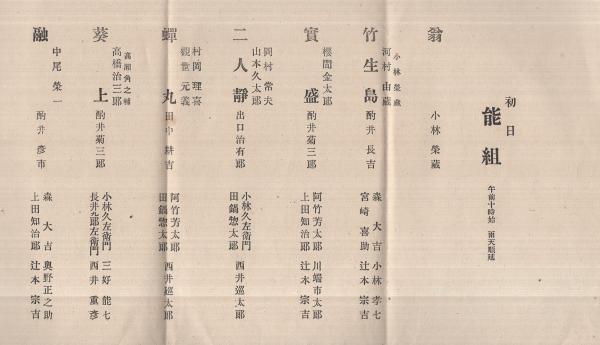 初日
能組
午前十時始 雨天順延
翁
小林榮蔵
小林榮蔵
河村由蔵
竹生島
酌井長吉
森大吉 小林孝七
宮崎喜助 辻本宗吉
櫻間金太郎
實盛
酌井菊三郎
阿竹芳太郎 川端市太郎
上田知治郎 辻本宗吉
岡村常夫
山本久太郎
二人靜
出口治有郎
小林久左衛門
田鍋惣太郎 西井巡太郎
村岡理喜
觀世元義
蟬丸
田中耕吉
阿竹芳太郎
田鍋惣太郎 西井巡太郎
高瀬角之輔
高橋治三郎
葵上
酌井菊三郎
小林久左衛門 三好能七
長井九郎左衛門 西井重彦
中尾榮一
融
酌井彦市
森大吉 奥野正之助
上田知治郎 辻本宗吉